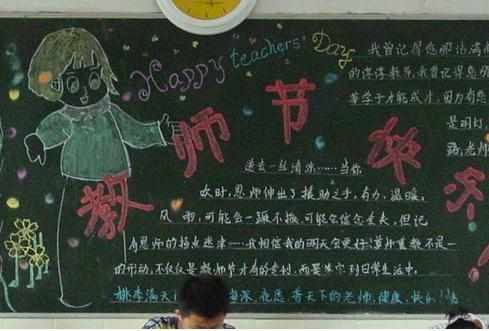 Happy teachers' Day
教师节快乐
我曾记得您那沾满
的谆谆教导,我曾记得您那
莘学子才能成才,因为有您
是明灯,
路,老师
送去一丝清凉……当你
时,恩师伸出了援助之手,有力、温暖。
风雨,可能会一蹶不振,可能会信念丢失,但记
有恩师的指点迷津……我相信我的明天会更好!尊师重教不是一
的行动,不仅仅是教师节才有的专利,而要落实到日常生活中。
桃李满天 海深,祝愿 普天下的老师,健康、快乐!